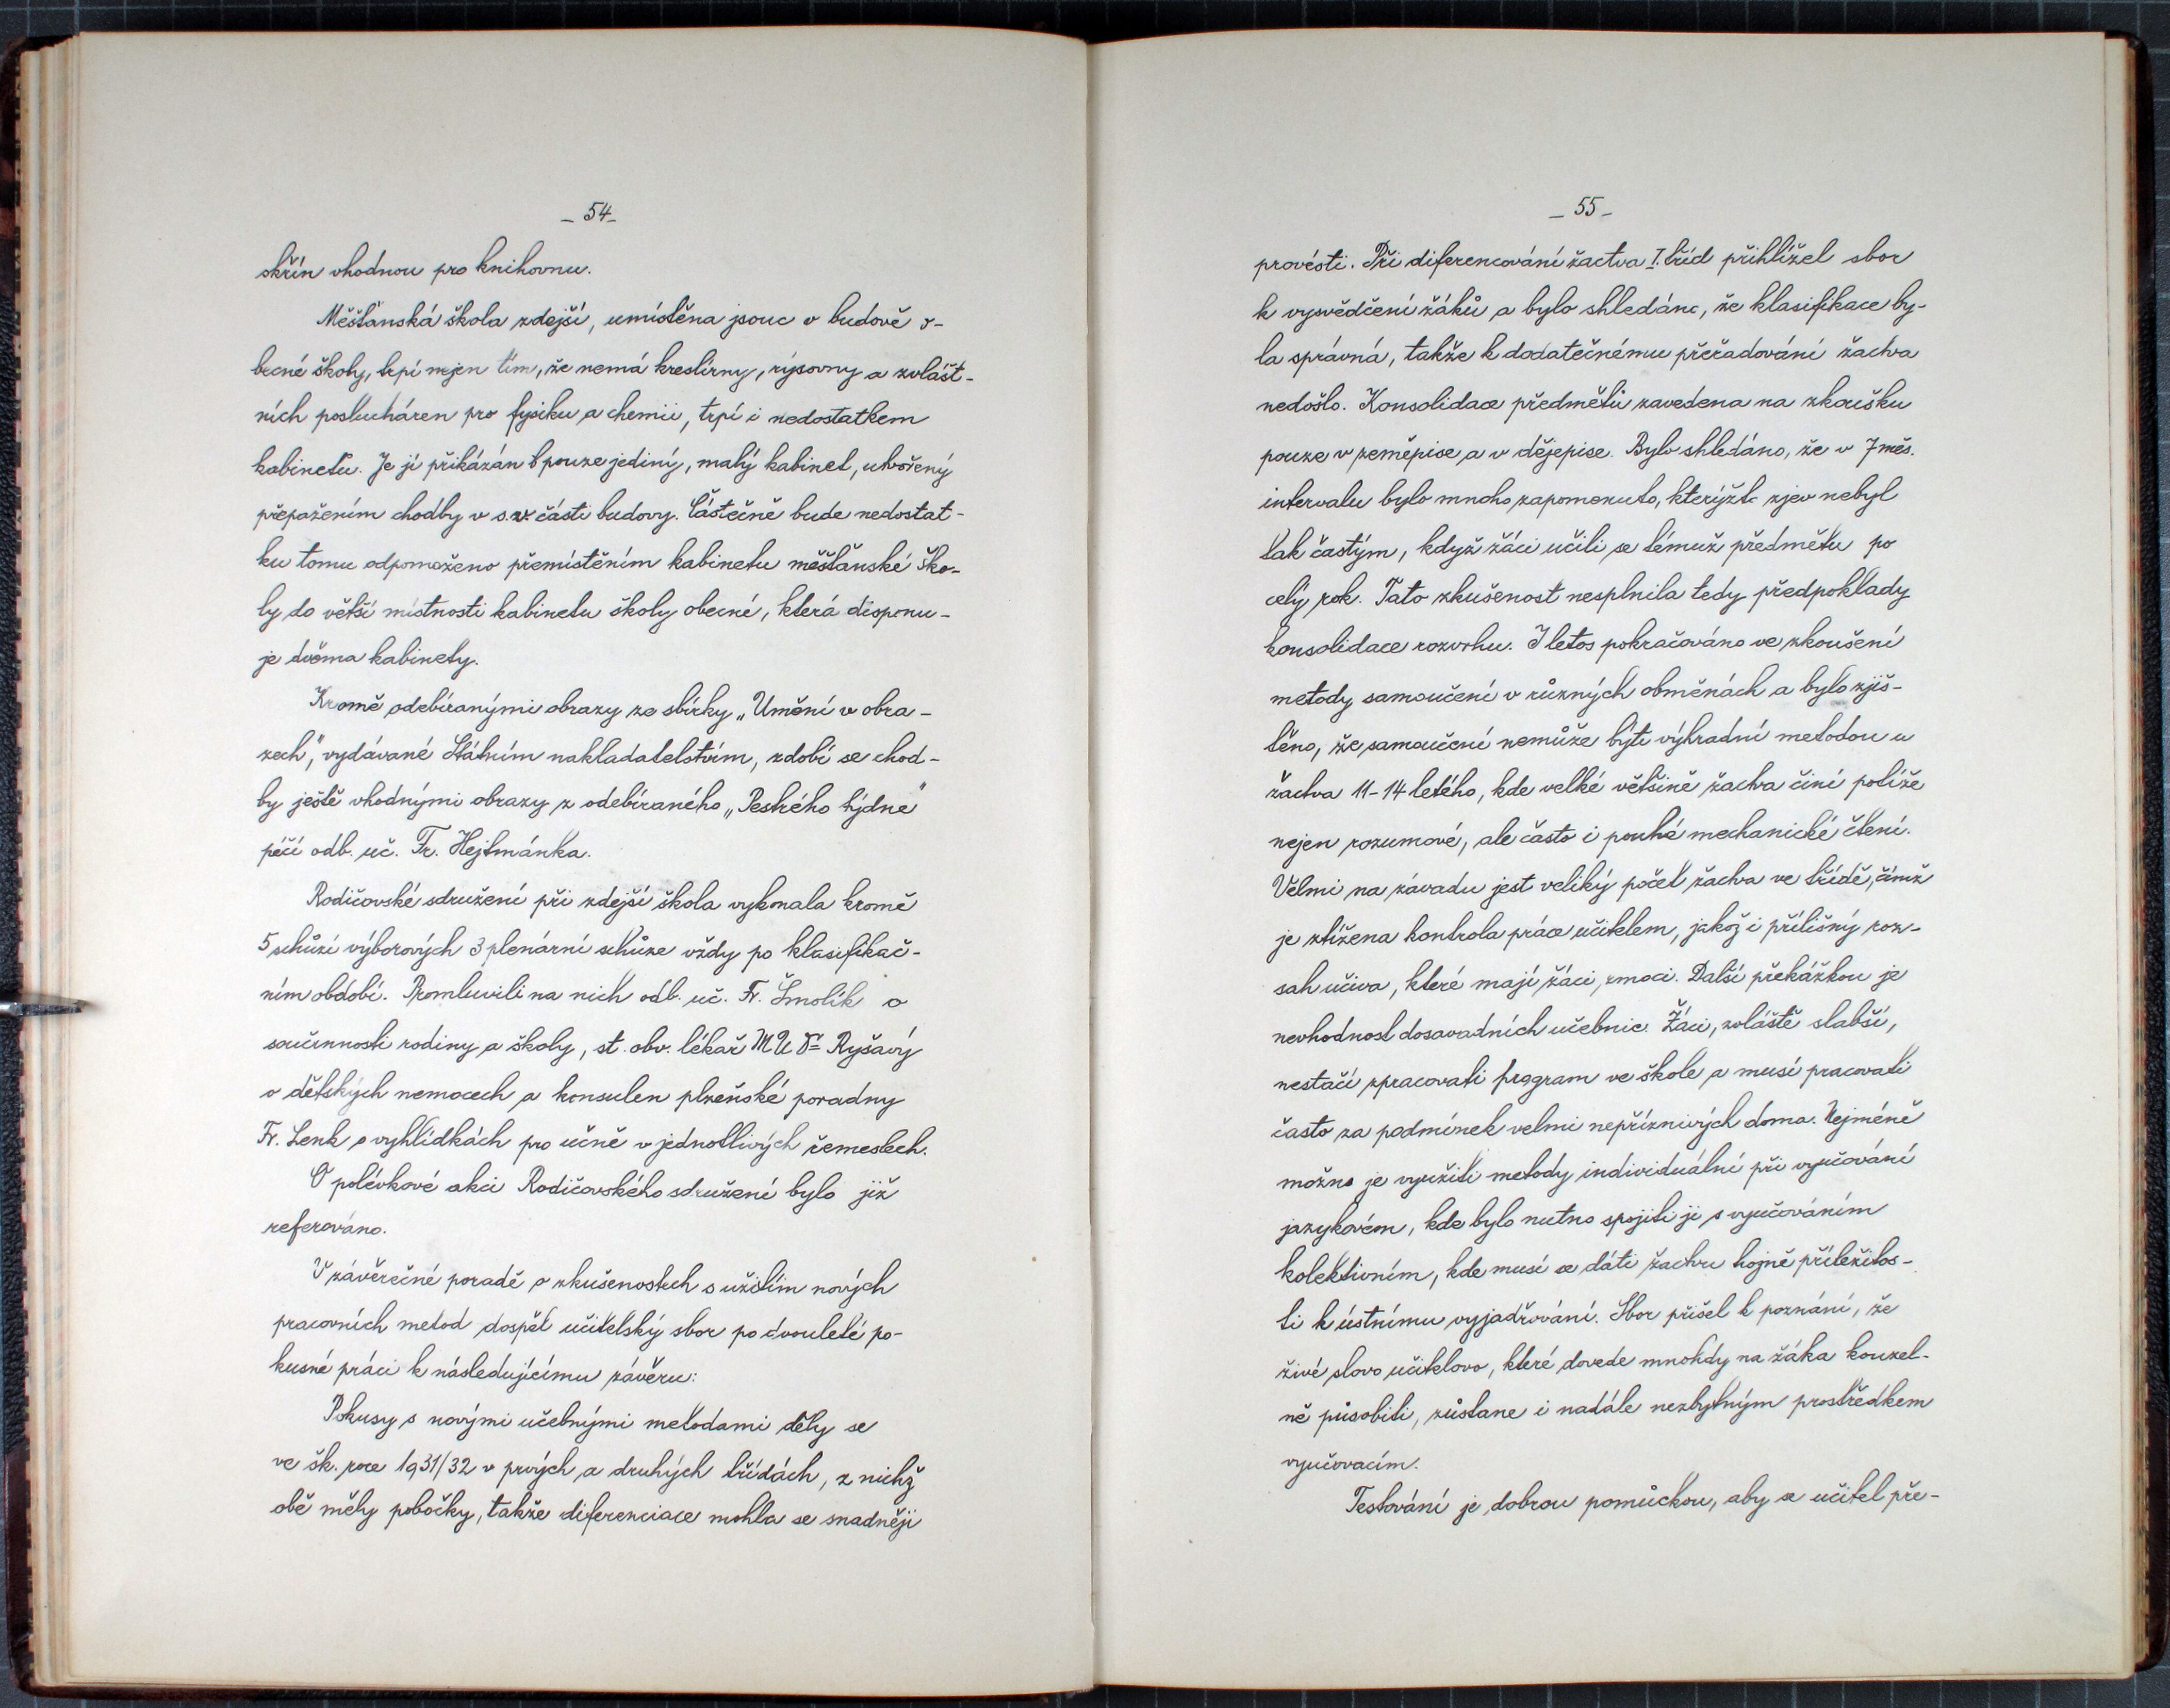 - 54 -
skříň vhodnou pro knihovnu.
Měšťanská škola zdejší, umístěna jsouc v budově o-
becné školy, trpí nejen tím, že nemá kreslírny, rýsovny a zvlášt-
ních poslucháren pro fysiku a chemii, trpí i nedostatkem
kabinetů. Je jí přikázán pouze jediný, malý kabinet, utvořený
přepažením chodby v s.v. části budovy. Částečně bude nedostat-
ku tomu odpomoženo přemístěním kabinetu měšťanské ško-
ly do větší místnosti kabinetu školy obecné, která disponu-
je dvěma kabinety.
Kromě odebíranými obrazy ze sbírky „Umění v obra-
zech", vydávané Státním nakladatelstvím, zdobí se chod-
by ještě vhodnými obrazy z odebíraného „Pestrého týdne"
péčí odb. uč. Fr. Hejtmánka.
Rodičovské sdružení při zdejší škola vykonala kromě
5 schůzí výborových 3 plenární schůze vždy po klasifikač-
ním období. Promluvili na nich odb. uč. Fr. Smolík o
součinnosti rodiny a školy, st. obv. lékař MUDr Ryšavý
o dětských nemocech a konsulen plzeňské poradny
Fr. Lenk o vyhlídkách pro učně v jednotlivých řemeslech.
O polévkové akci Rodičovského sdružení bylo již
referováno.
V závěrečné poradě o zkušenostech s užitím nových
pracovních metod dospěl učitelský sbor po dvouleté po-
kusné práci k následujícímu závěru:
Pokusy s novými učebnými metodami děly se
ve šk. roce 1931/32 v prvých a druhých třídách, z nichž
obě měly pobočky, takže diferenciace mohla se snadněji
- 55 -
provésti. Při diferencování žactva I. tříd přihlížel sbor
k vysvědčení žáků a bylo shledáno, že klasifikace by-
la správná, takže k dodatečnému přeřadování žactva
nedošlo. Konsolidace předmětů zavedena na zkoušku
pouze v zeměpise a v dějepise. Bylo shledáno, že v 7 měs.
intervalu bylo mnoho zapomenuto, kterýžto zjev nebyl
tak častým, když žáci učili se témuž předmětu po
celý rok. Tato zkušenost nesplnila tedy předpoklady
konsolidace rozvrhu. I letos pokračováno ve zkoušení
metody samoučení v různých obměnách a bylo zjiš-
těno, že samoučení nemůže býti výhradní metodou u
žactva 11-14 letého, kde velké většině žactva činí potíže
nejen rozumové, ale často i pouhé mechanické čtení.
Velmi na závadu jest veliký počet žactva ve třídě, čímž
je ztížena kontrola práce učitelem, jakož i přílišný roz-
sah učiva, které mají žáci zmoci. Další překážkou je
nevhodnost dosavadních učebnic. Žáci, zvláště slabší,
nestačí zpracovati program ve škole a musí pracovati
často za podmínek velmi nepříznivých doma. Nejméně
možno je využiti metody individuální při vyučování
jazykovém, kde bylo nutno spojiti ji s vyučováním
kolektivním, kde musí se dáti žactvu hojně příležitos-
ti k ústnímu vyjadřování. Sbor přišel k poznání, že
živé slovo učitelovo, které dovede mnohdy na žáka kouzel-
ně působiti, zůstane i nadále nezbytným prostředkem
vyučovacím.
Testování je dobrou pomůckou, aby se učitel pře-